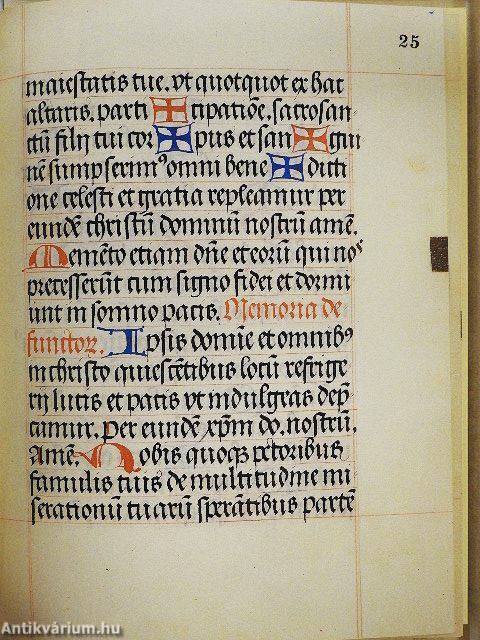 25
maiestatis tue. vt quotquot ex hac
altaris. parti ✠ cipatiõe. sacrosan-
ctũ filij tui cor ✠ pus et san ✠ gui
nẽ sumpserimꝰ omni bene ✠ dicti
one celesti et gratia repleamur per
eundẽ christũ dominũ nostrũ amẽ.
Memẽto etiam dñe et eorũ qui nos
precesserũt cum signo fidei et dormi
unt in somno pacis. Memoria de
functoꝝ. Ipsis domine et omnibꝰ
in christo quiescẽtibus locũ refrige
rij lucis et pacis vt indulgeas dep̃
camur. Per eundẽ xp̃m do. nostrũ.
Amẽ. Nobis quoqꝫ pctoribus
famulis tuis de multitudine mi
serationũ tuarũ sperãtibus partẽ
Antikvárium.hu